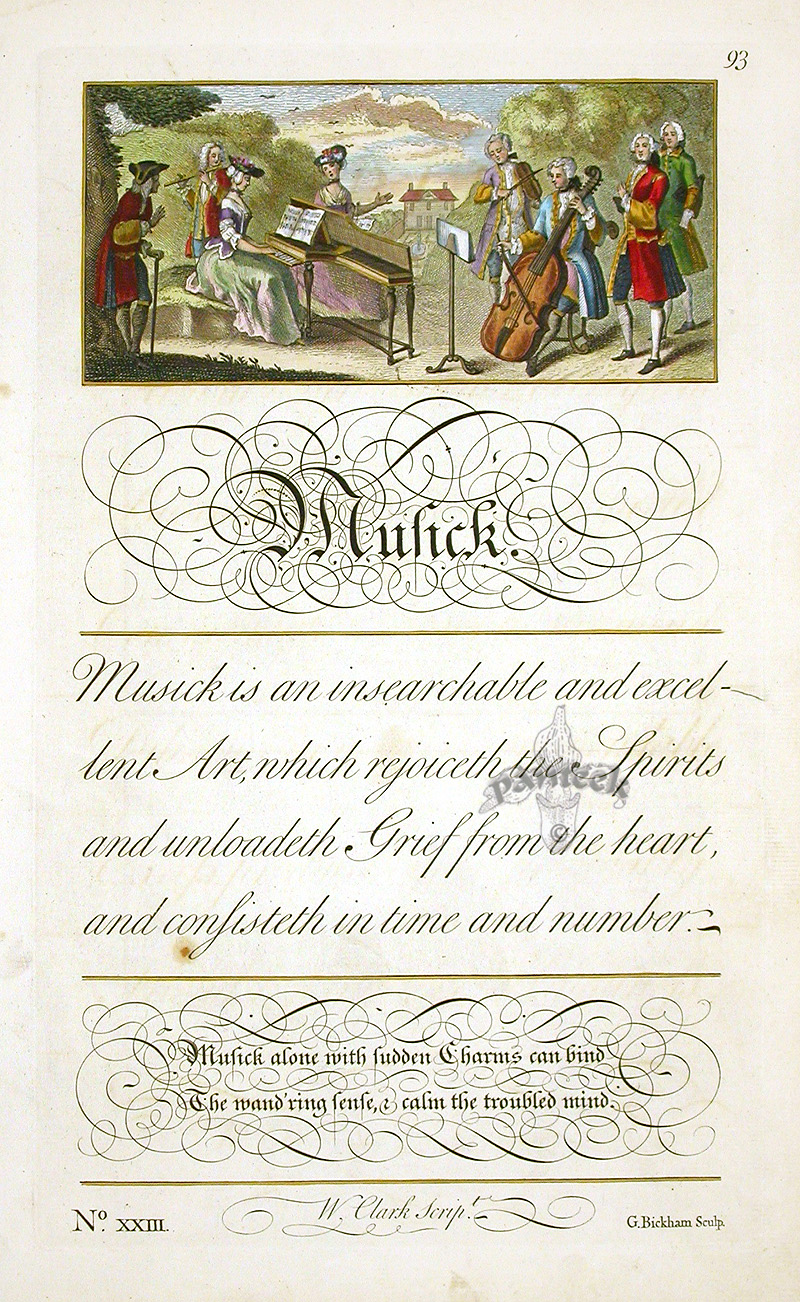 93
Musick.
Musick is an insearchable and excel-
lent Art, which rejoiceth the Spirits
and unloadeth Grief from the heart,
and conſisteth in time and number.
Muſick alone with ſudden Charms can bind
The wand'ring ſenſe, & calm the troubled mind.
No. XXIII.
W. Clark Scrip.t
G. Bickham Sculp.
panteek
©